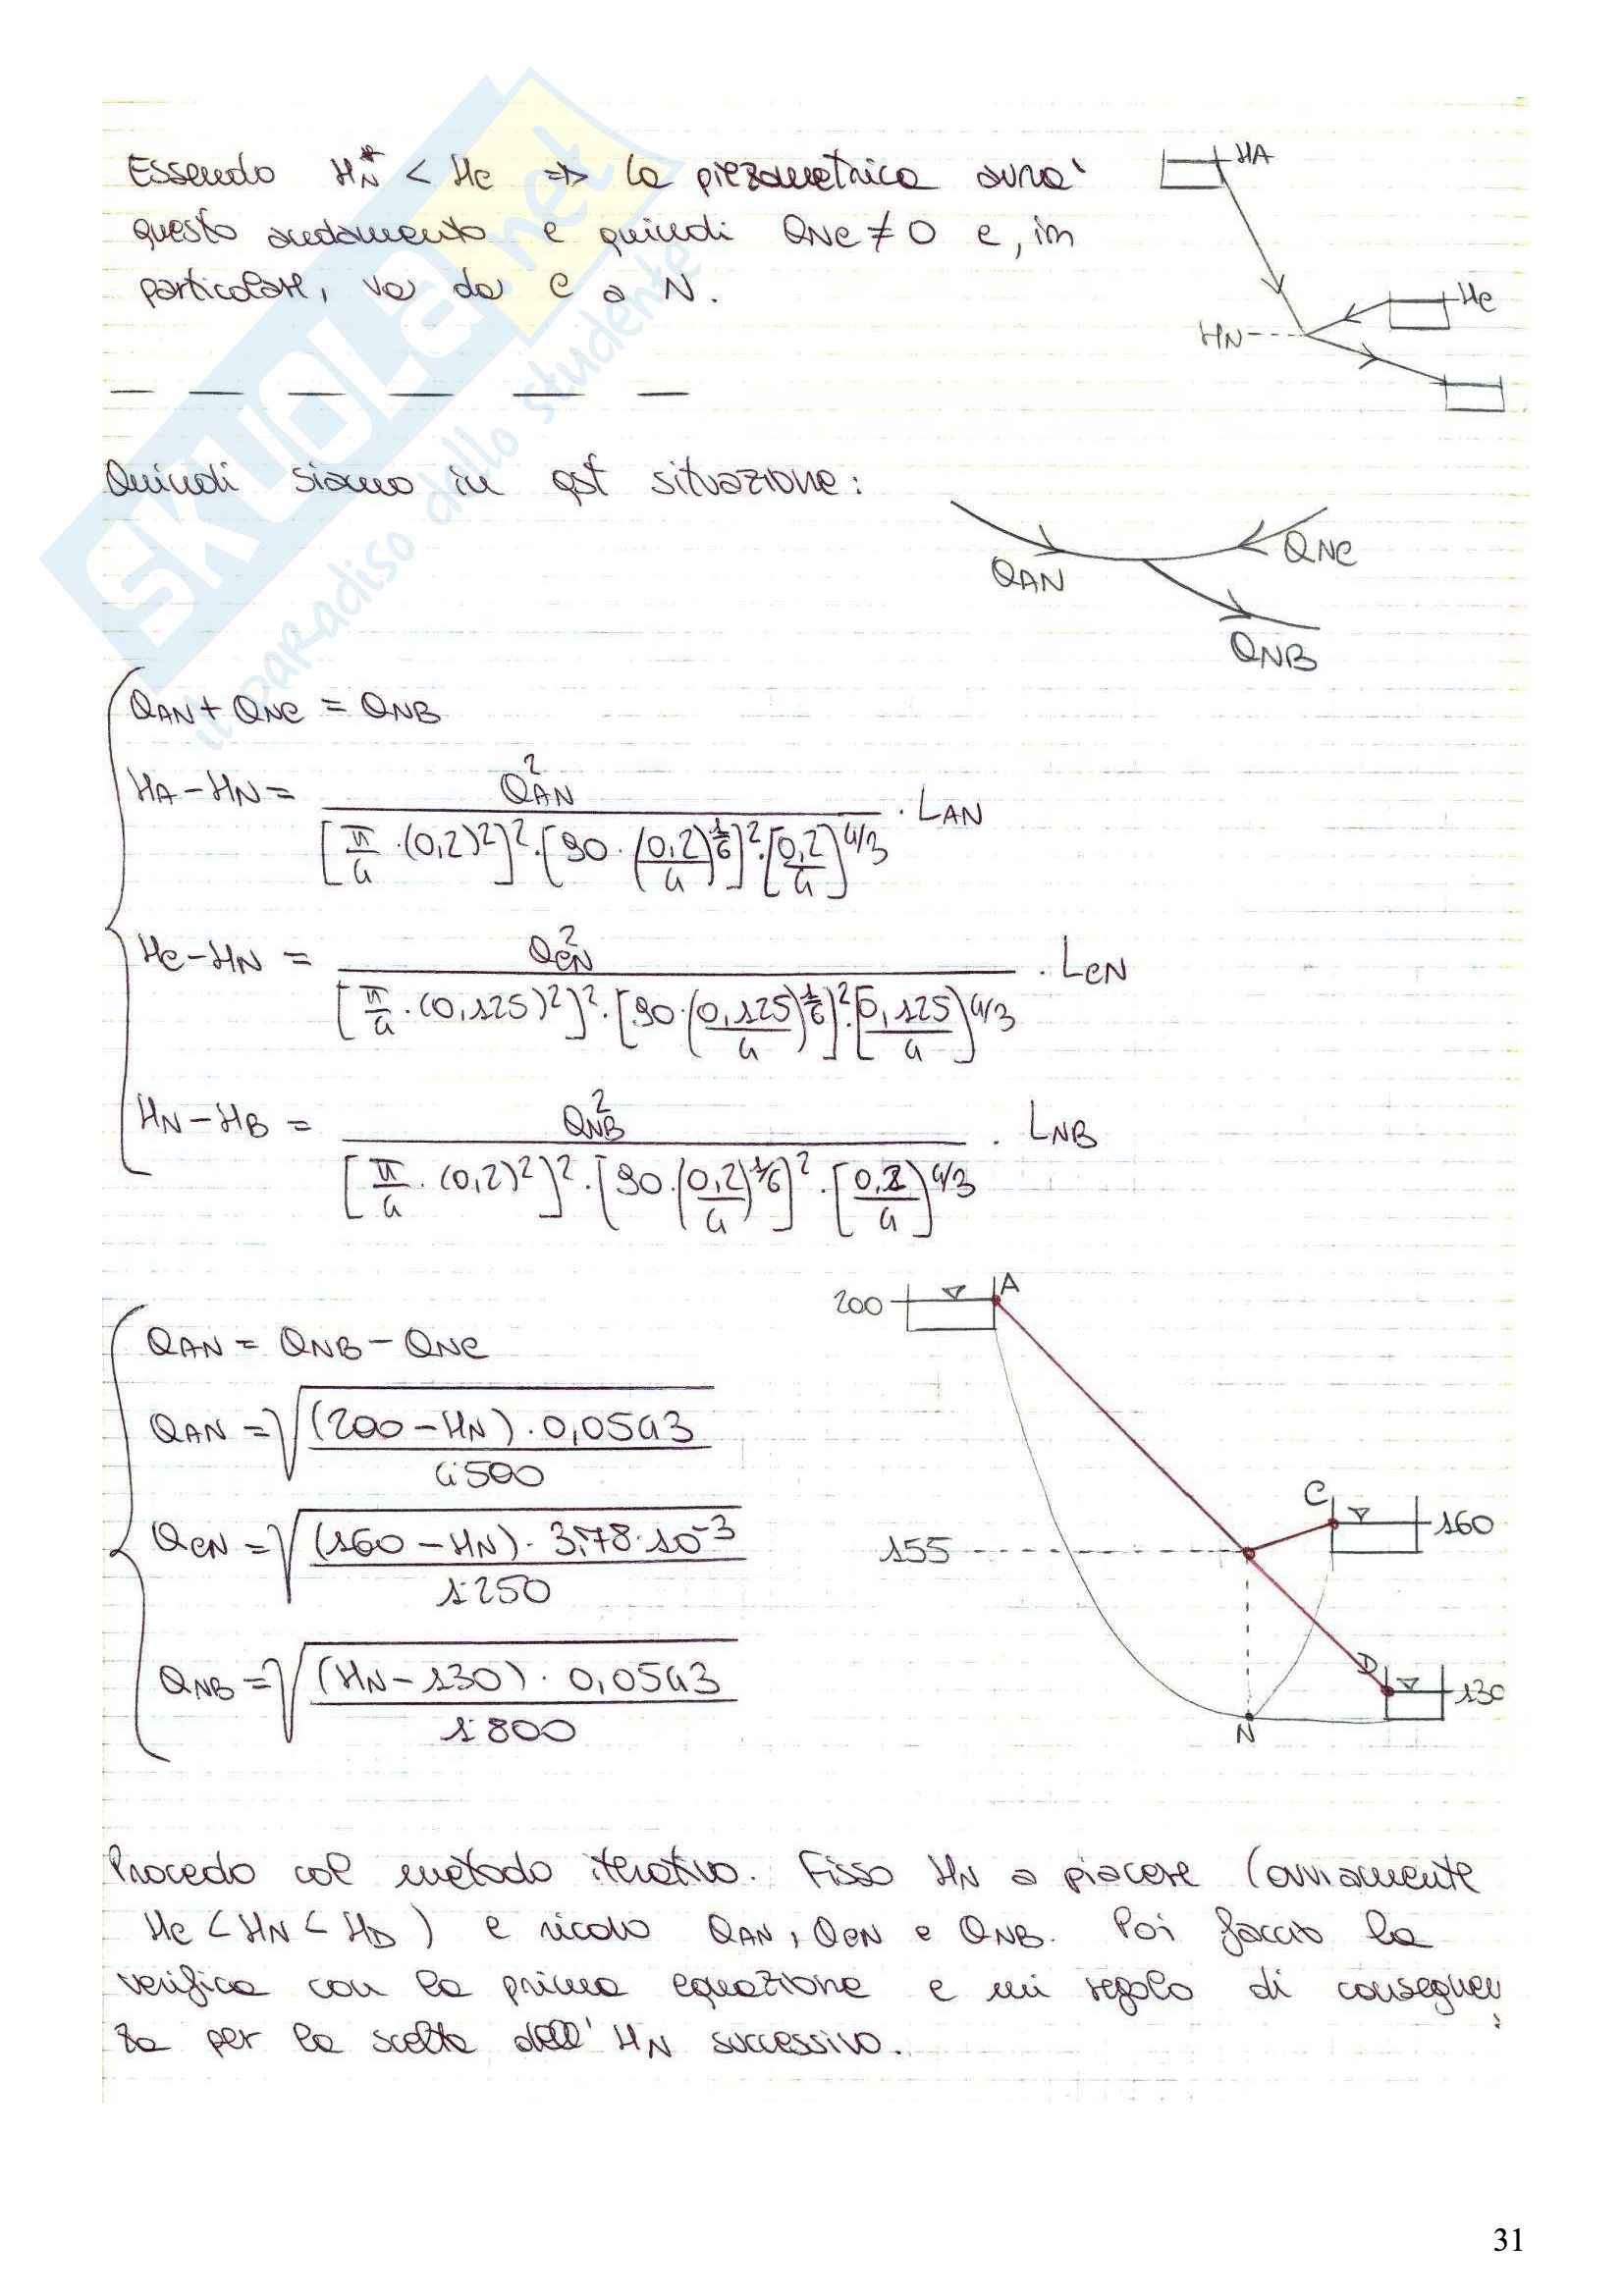 Essendo HN* < HC ⇒ la piezometrica avra'
questo andamento e quindi QNC ≠ 0 e, in
particolare, va da C a N.
HA
HC
HN
Quindi siamo in qst situazione:
QAN
QNC
QNB
QAN + QNC = QNB
HA - HN = Q²AN / [π/4 · (0,2)²]² · [90 · (0,2/4)^1/6]² · [0,2/4]^4/3 · LAN
HC - HN = Q²CN / [π/4 · (0,125)²]² · [90 · (0,125/4)^1/6]² · [0,125/4]^4/3 · LCN
HN - HB = Q²NB / [π/4 · (0,2)²]² · [90 · (0,2/4)^1/6]² · [0,2/4]^4/3 · LNB
QAN = QNB - QNC
QAN = √((200 - HN) · 0,0543 / 4500)
QCN = √((160 - HN) · 3,78 · 10⁻³ / 1250)
QNB = √((HN - 130) · 0,0543 / 1800)
200
A
C
160
155
D
130
N
Procedo col metodo iterativo. Fisso HN a piacere (ovviamente
HC < HN < HD) e ricavo QAN, QCN e QNB. Poi faccio la
verifica con la prima equazione e mi regolo di conseguen
za per la scelta dell' HN successivo.
31
SKUOLA.net
il paradiso dello studente